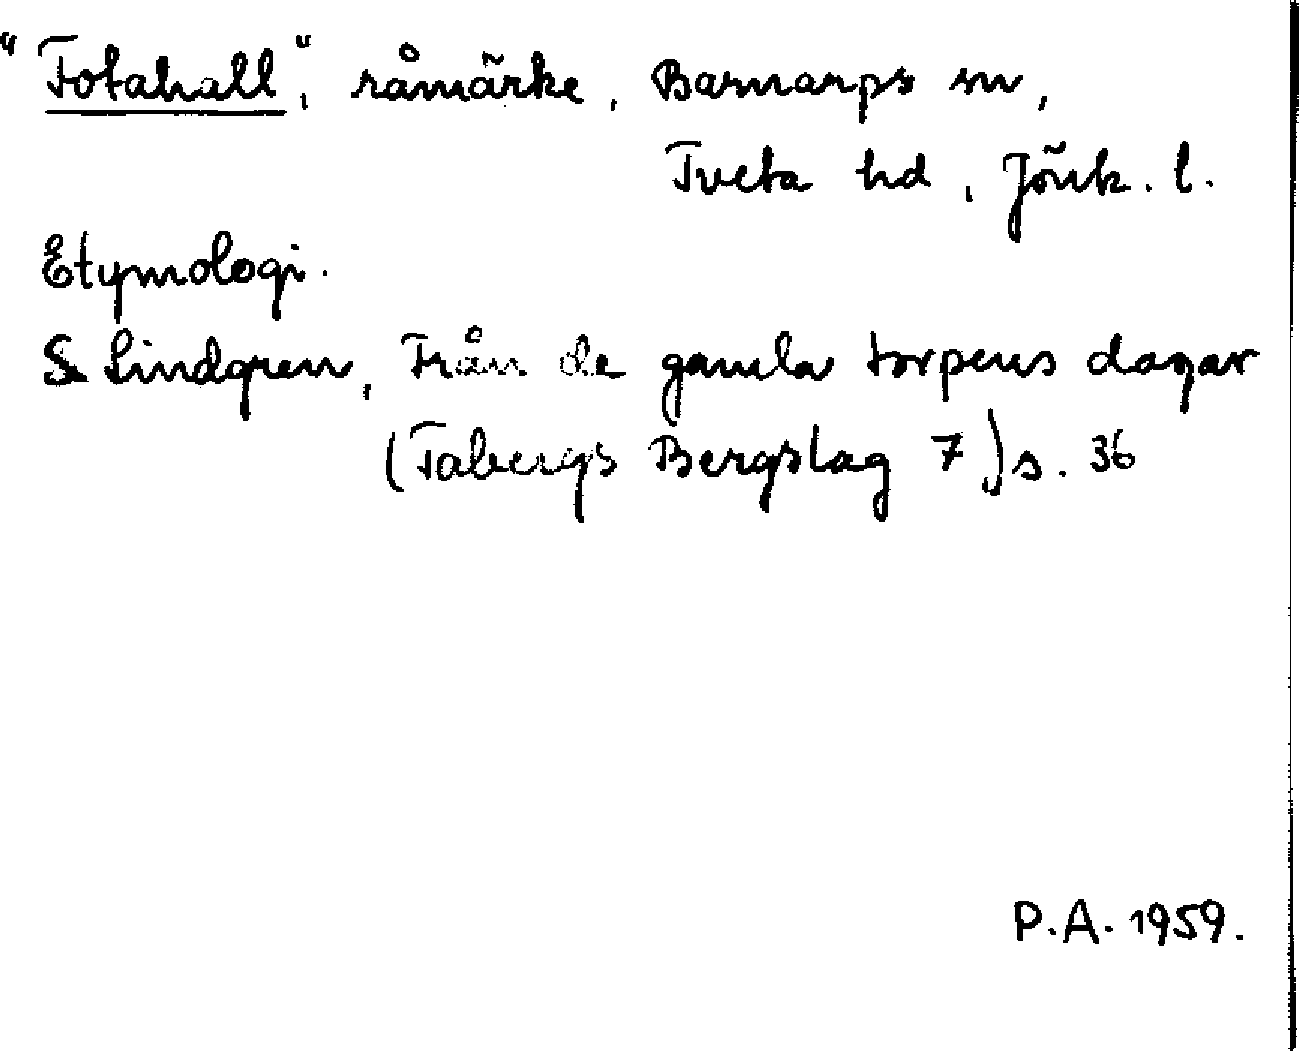 "Fotahall", råmärke, Barnarps sn,
Tveta hd, Jönk. l.
Etymologi.
S Lindgren, Från de gamla torpens dagar
(Tabergs Bergslag 7) s. 36
P.A. 1959.